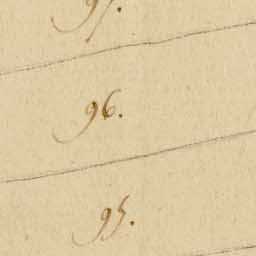 97.
96.
95.